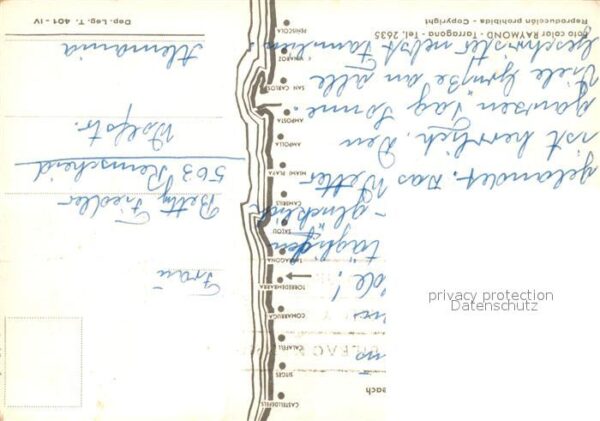 ole!
täglichen
glücklich
gelandet. Das Wetter
ist herrlich. Den
ganzen Tag Sonne.
Viele Grüße an alle
Geschwister nebst Familien.
Foto color RAYMOND - Tarragona - Tel. 2635
Reproducción prohibida - Copyright
CASTELLDEFELS
SITGES
CALAFELL
COMARRUGA
TORREDEMBARRA
TARRAGONA
SALOU
CAMBRILS
MIAMI PLAYA
AMPOLLA
AMPOSTA
SAN CARLOS
VINAROZ
PEÑISCOLA
Frau
Betty Fiedler
563 Remscheid
Wolfstr.
Alemania
Dep. Leg. T. 401 - IV
privacy protection
Datenschutz